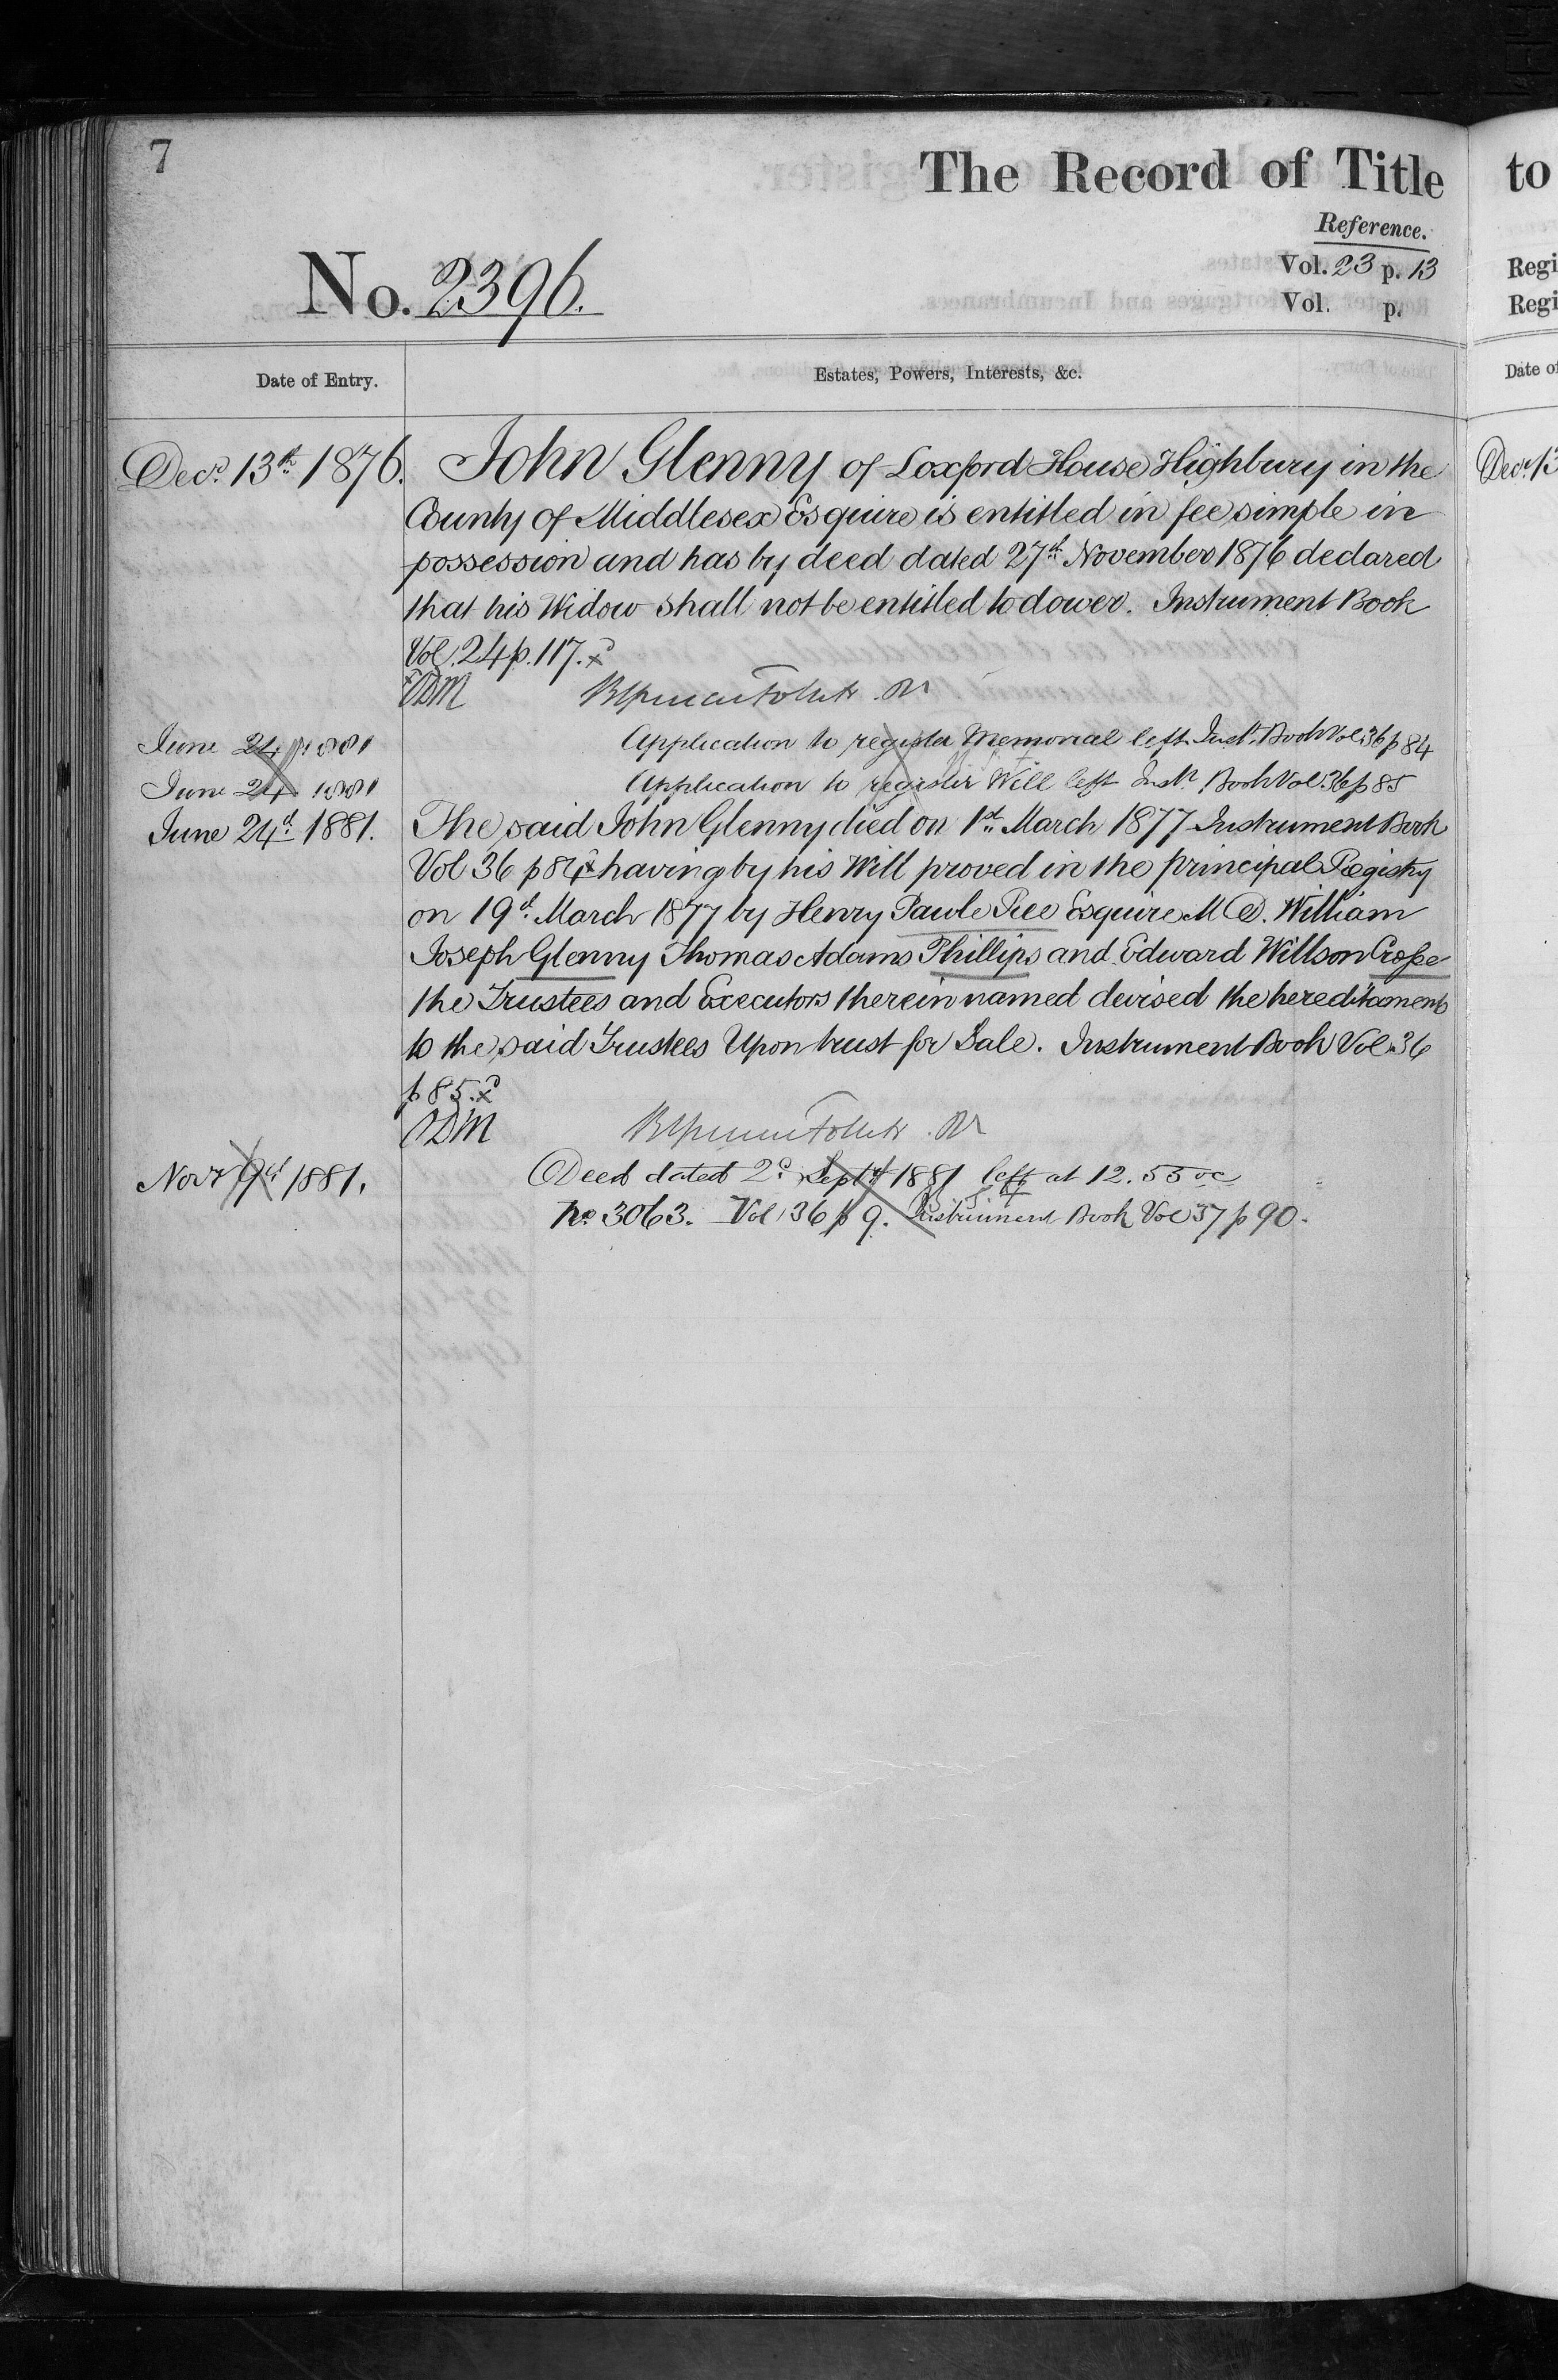 7
The Record of Title
to
Reference.
No. 2396.
Vol. 23 p. 13
Vol. p.
Regi
Regi
Date of Entry.
Estates, Powers, Interests, &c.
Date of
Decr. 13th 1876. John Glenny of Loxford House Highbury in the
County of Middlesex Esquire is entitled in fee simple in
possession and has by deed dated 27th November 1876 declared
that his Widow shall not be entitled to dower. Instrument Book
Vol. 24 p. 117.
VDM
June 24 1881 Application to register Memorial left Inst. Book Vol 36 p 84
June 24 1881 Application to register Will left Inst. Book Vol 36 p 85
June 24th 1881. The said John Glenny died on 1st March 1877 Instrument Book
Vol 36 p 84 having by his Will proved in the principal Registry
on 19th March 1877 by Henry Pawle Ree Esquire M D. William
Joseph Glenny Thomas Adams Phillips and Edward Willson Crosse
the Trustees and Executors therein named devised the hereditaments
to the said Trustees Upon trust for Sale. Instrument Book Vol 36
p 85.
VDM
Novr 9th 1881. Deed dated 2d Septr 1881 left at 12.55 oc
No. 3063. Vol 36 p 9. Instrument Book Vol 37 p 90.
Decr 13